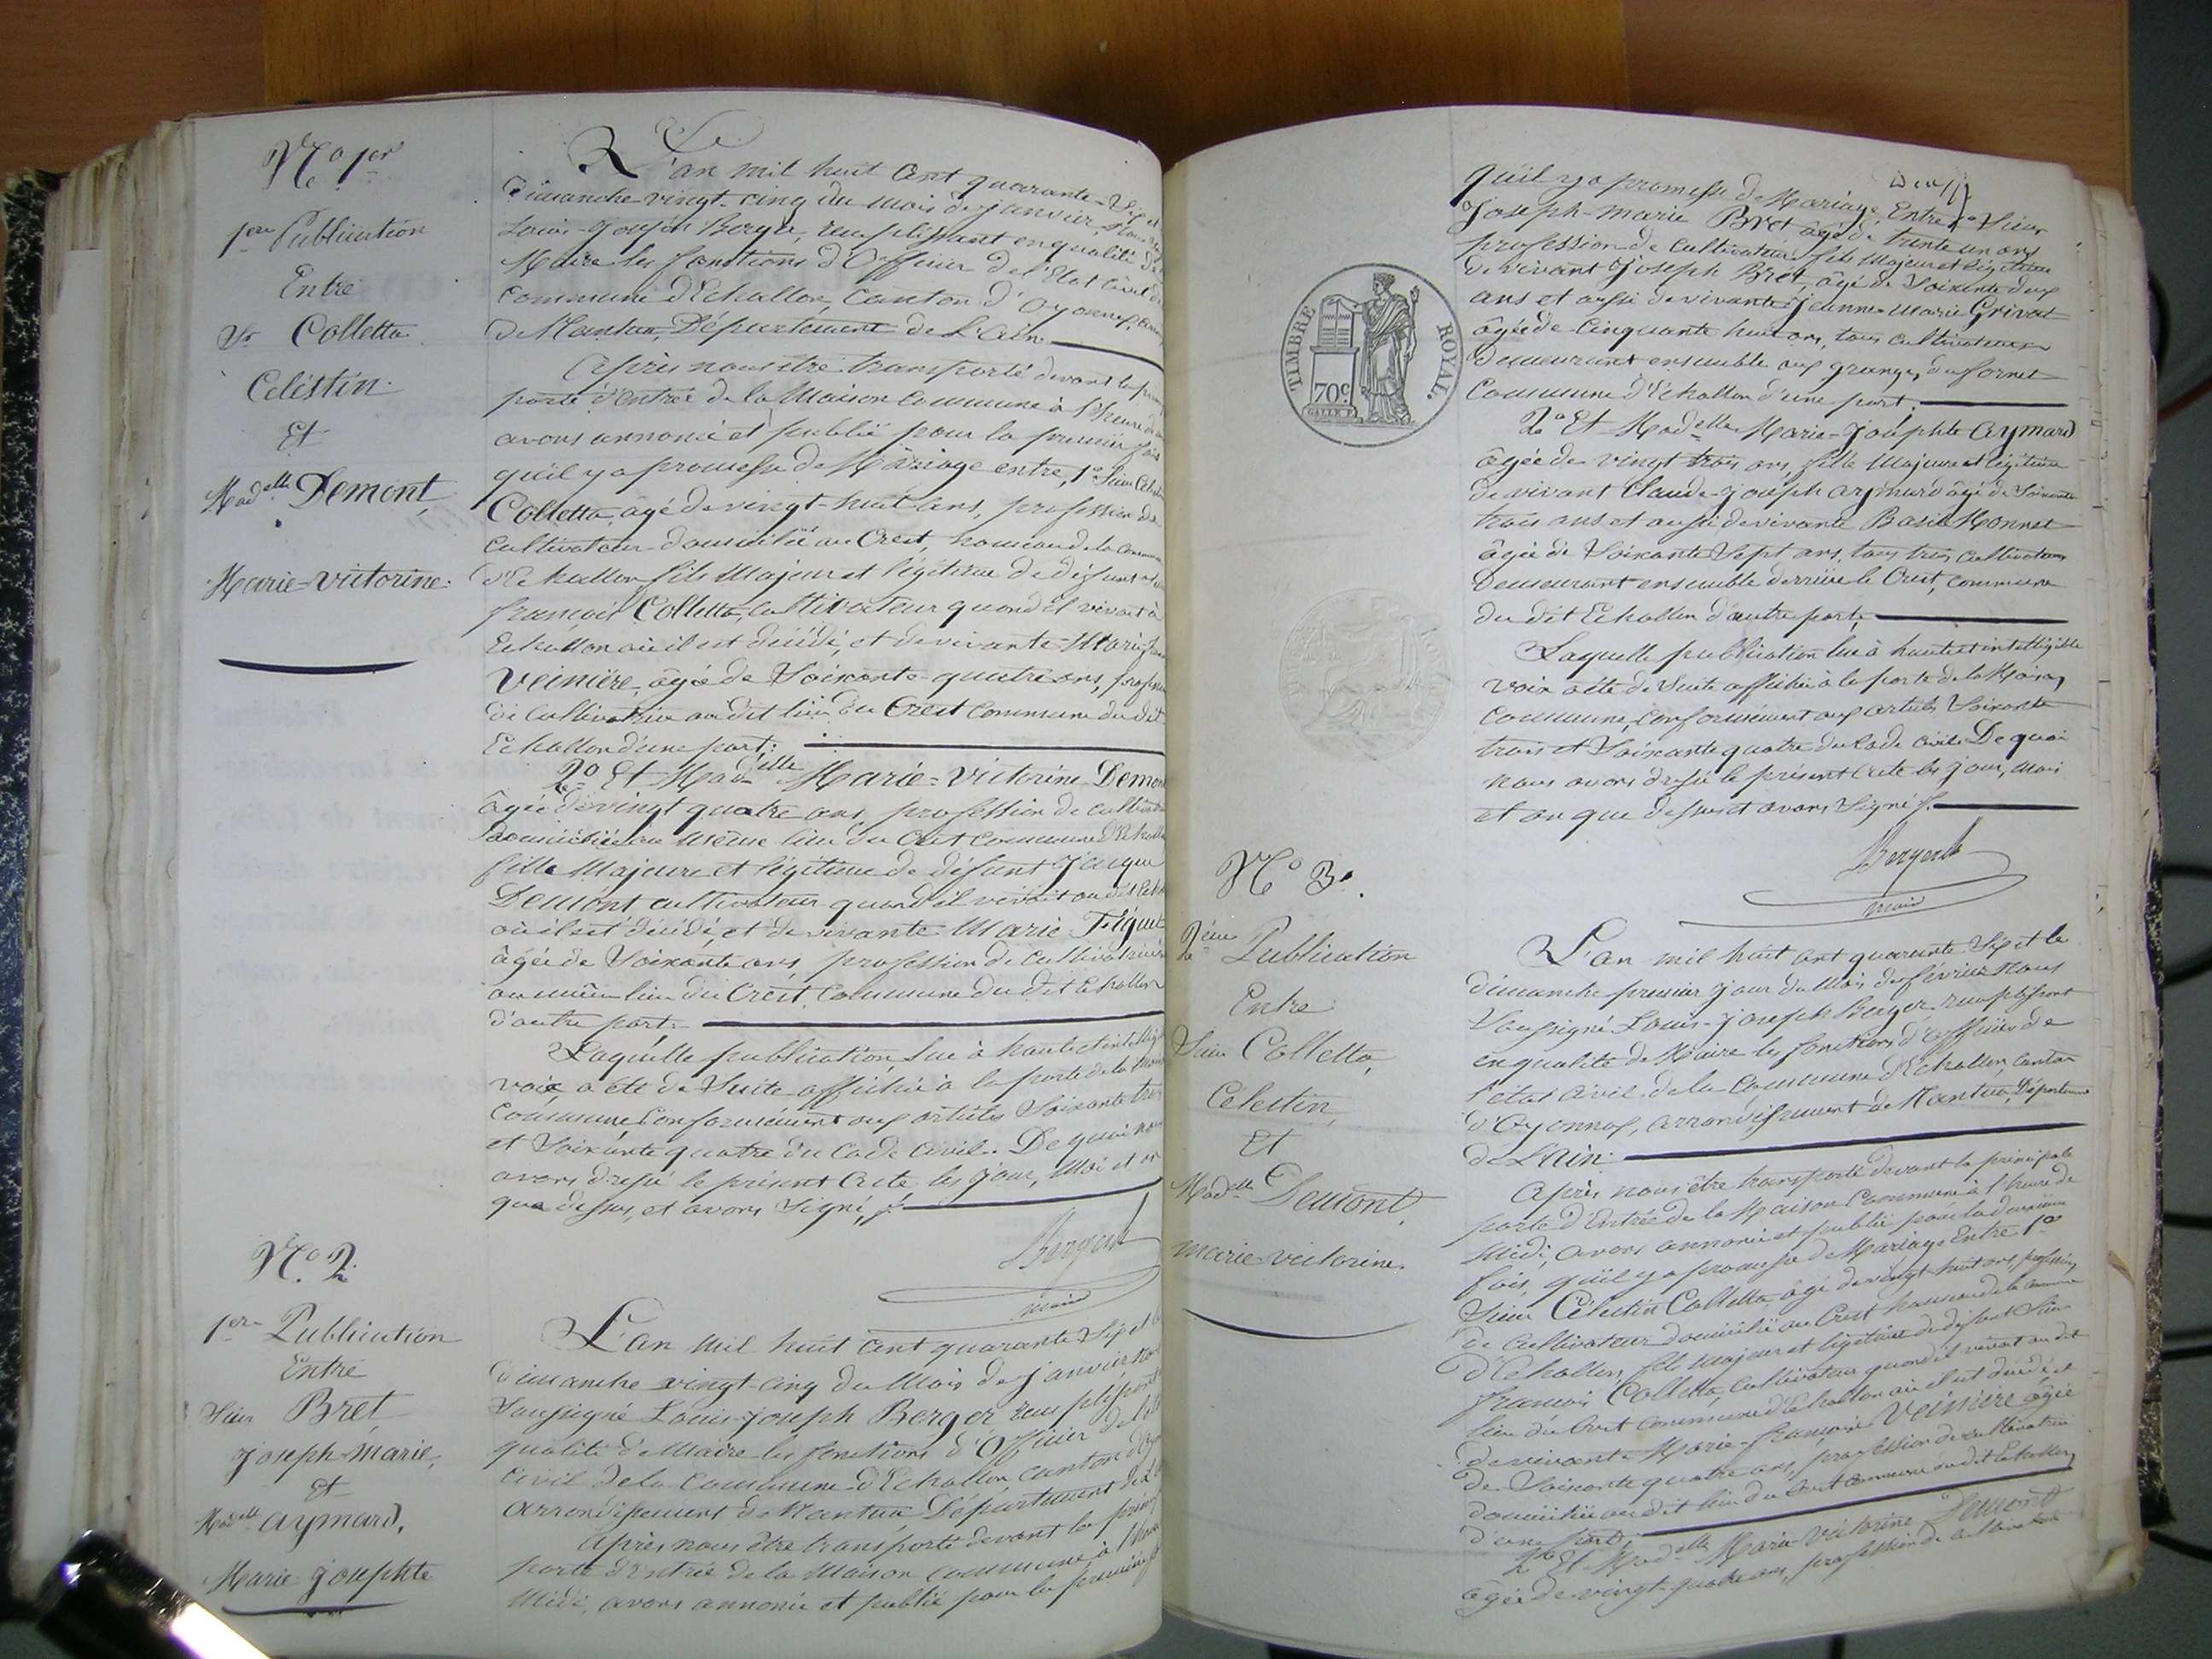 N.o 1er
1ere Publication
Entre
Sr Colletta
Céléstin
Et
Madelle Demont,
Marie-victorine.
L'an mil huit cent quarante-Sept
Dimanche vingt-cinq du mois de janvier, Nous
Louis-Joseph Berger, remplissant en qualité de
Maire les fonctions d'Officier de l'Etat Civil de
Commune d'Echallon, Canton d'Oyonnax,
de Nantua, Département de L'Ain
Après nous être transporté devant la
porte d'entrée de la Maison Commune à l'heure de
avons annoncé et publié pour la première fois
qu'il y a promesse de Mariage entre, 1o Sieur
Colletta, âgé de vingt-huit ans, profession de
cultivateur domicilié au Crest, hameau de la
d'Echallon fils Majeur et légitime de défunt
françois Colletta, cultivateur quand il vivait à
Echallon où il est décédé, et de vivante Marie
Veinière, âgée de Soixante quatre ans,
de cultivatrice au dit lieu du Crest Commune du dit
Echallon d'une part;
2o Et Madelle Marie-Victorine
âgée de vingt quatre ans, profession de
domiciliée au même lieu du Crest Commune
fille Majeure et légitime de défunt Jacque
Demont cultivateur quand il vivait au dit
où il est décédé, et de vivante Marie
âgée de Soixante ans, profession de cultivatrice
au même lieu du Crest, Commune du dit Echallon
d'autre part.
Laquelle publication, lue à haute et
voix a été de Suite affichée à la porte de la
Commune Conformément aux articles Soixante trois
et Soixante quatre du Code Civil. De quoi nous
avons dressé le présent Acte les jour, Mois et an
que dessus, et avons Signé,
Berger
maire
N.o 2.
1ere Publication
Entre
Sieur Bret
Joseph-Marie,
Et
Madelle Aymard,
Marie Josephte
L'an mil huit cent quarante Sept et le
Dimanche vingt-cinq du Mois de janvier,
Soussigné Louis-Joseph Berger remplissant
qualité de Maire les fonctions d'Officier de
Civil de la Commune d'Echallon, Canton
arrondissement de Nantua, Département de
Après nous être transporté devant la
porte d'entrée de la Maison Commune, à l'heure
Midi, avons annoncé et publié pour la première
qu'il y a promesse de Mariage Entre 1o Sieur
Joseph-Marie Bret âgé de trente un ans
profession de cultivateur fils Majeur et légitime
de vivant Joseph Bret, âgé de Soixante deux
ans et aussi de vivante Jeanne-Marie Grivat
âgée de Cinquante huit ans, tous cultivateurs
demeurant ensemble aux granges du fornet
Commune d'Echallon d'une part.
2o Et Madelle Marie-Josephte Aymard
âgée de vingt trois ans, fille Majeure et légitime
de vivant Claude-Joseph Aymard âgé de Soixante
trois ans et aussi de vivante Basile Monnet
âgée de Soixante Sept ans, tous trois cultivateurs
Demeurant ensemble derrière le Crest, commune
du dit Echallon d'autre part,
Laquelle publication lue à haute et intelligible
voix a été de Suite affichée à la porte de la Maison
Commune, conformément aux articles Soixante
trois et Soixante quatre du Code civil. De quoi
nous avons dressé le présent Acte les jour, mois
et an que dessus et avons Signé
Berger
maire
TIMBRE ROYAL.
70c
N.o 3.
2eme Publication
Entre
Sieur Colletta,
Célestin,
Et
Madelle Demont,
marie victorine.
L'an mil huit cent quarante Sept et le
Dimanche premier jour du Mois de février Nous
Soussigné Louis-Joseph Berger remplissant
en qualité de Maire les fonctions d'Officier de
l'état civil de la Commune d'Echallon, Canton
d'Oyonnax, arrondissement de Nantua, Département
de L'Ain.
Après nous être transporté devant la principale
porte d'Entrée de la Maison Commune à l'heure de
Midi, avons annoncé et publié pour la deuxième
fois, qu'il y a promesse de Mariage Entre 1o
Sieur Célestin Colletta âgé de vingt-huit ans, profession
de cultivateur domicilié au Crest hameau de la commune
d'Echallon, fils Majeur et légitime de défunt Sieur
françois Colletta, cultivateur quand il vivait au dit
lieu du Crest commune d'Echallon où il est décédé et
de vivante Marie-françoise Veinière âgée
de Soixante quatre ans, profession de cultivatrice
domiciliée au dit lieu du Crest Commune du dit Echallon
d'une part;
2o Et Madelle Marie-Victorine Demont
âgée de vingt-quatre ans, profession de cultivatrice